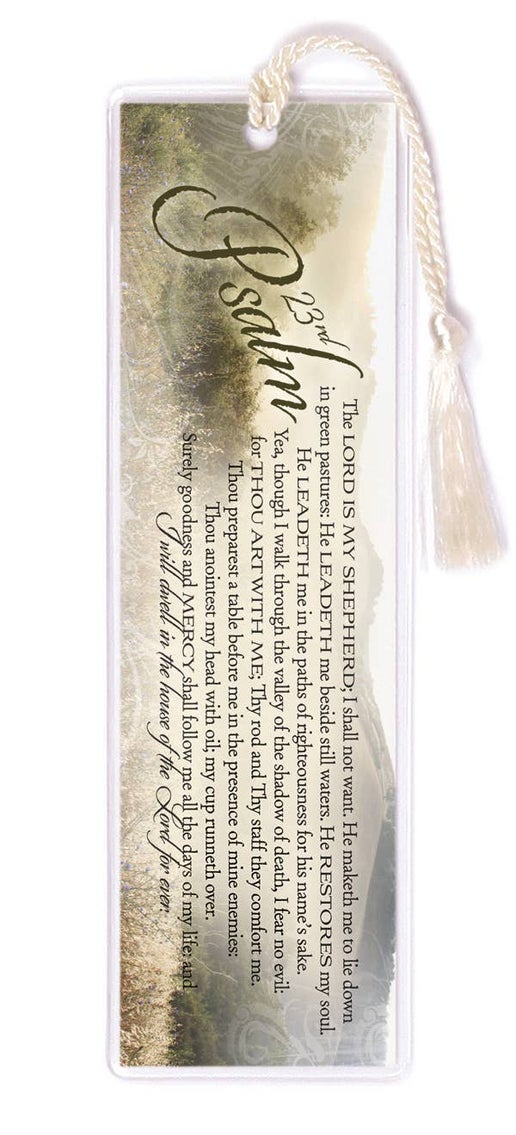 23rd
Psalm
The LORD IS MY SHEPHERD; I shall not want. He maketh me to lie down
in green pastures: He LEADETH me beside still waters. He RESTORES my soul.
He LEADETH me in the paths of righteousness for his name's sake.
Yea, though I walk through the valley of the shadow of death, I fear no evil:
for THOU ART WITH ME; Thy rod and Thy staff they comfort me.
Thou preparest a table before me in the presence of mine enemies:
Thou anointest my head with oil; my cup runneth over.
Surely goodness and MERCY shall follow me all the days of my life: and
I will dwell in the house of the Lord for ever.